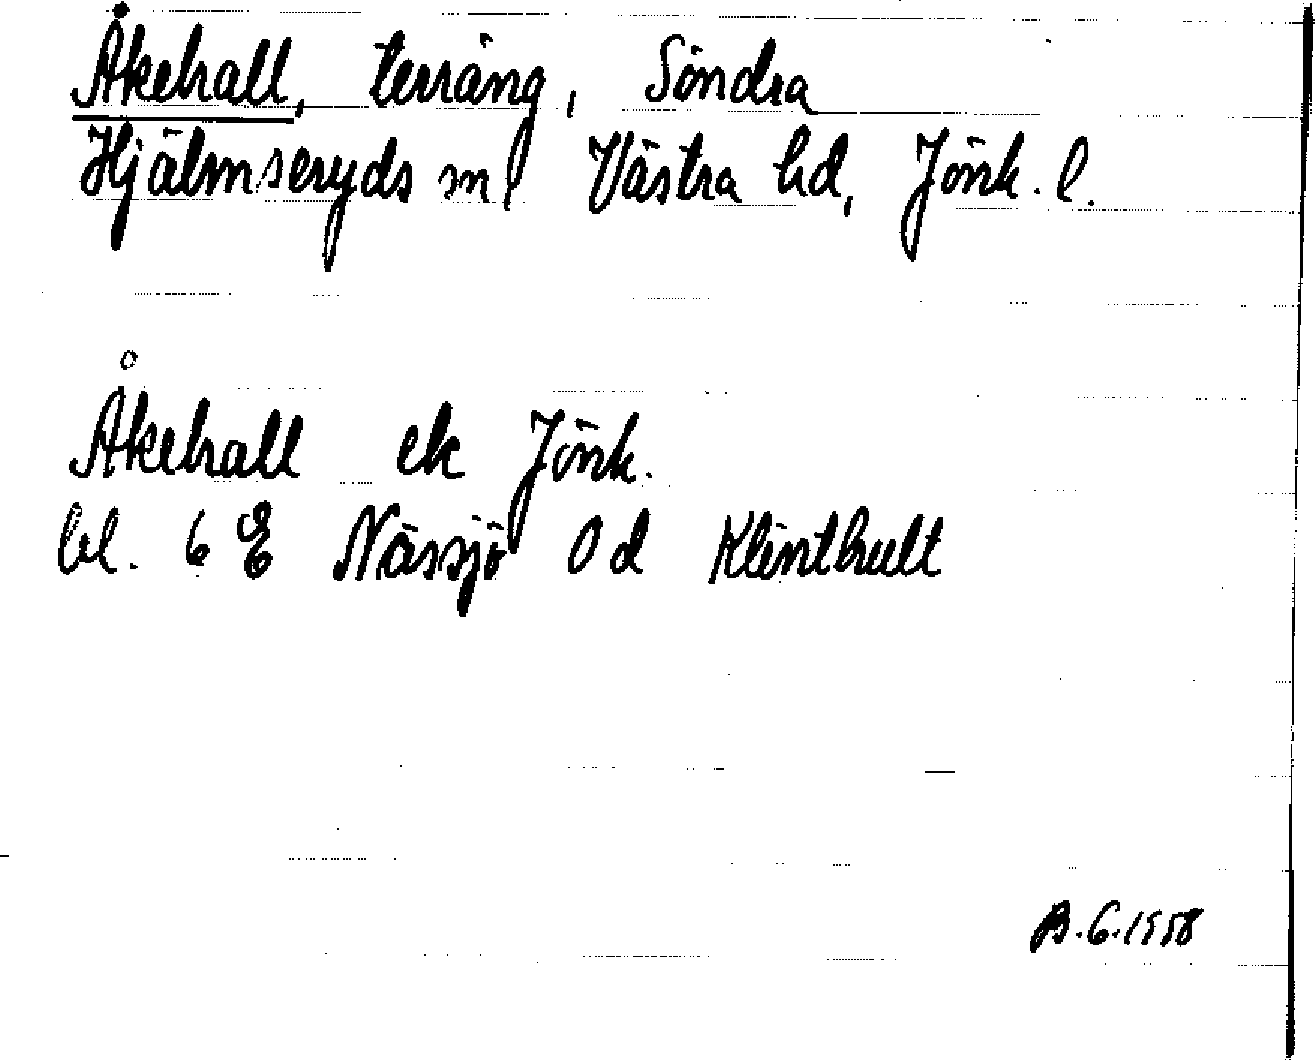 Åkehall, terräng, Söndra
Hjälmseryds sn, Västra hd, Jönk. l.
Åkehall ek Jönk.
bl. 6 E Nässjö 0 d Klinthult
B.6.1958